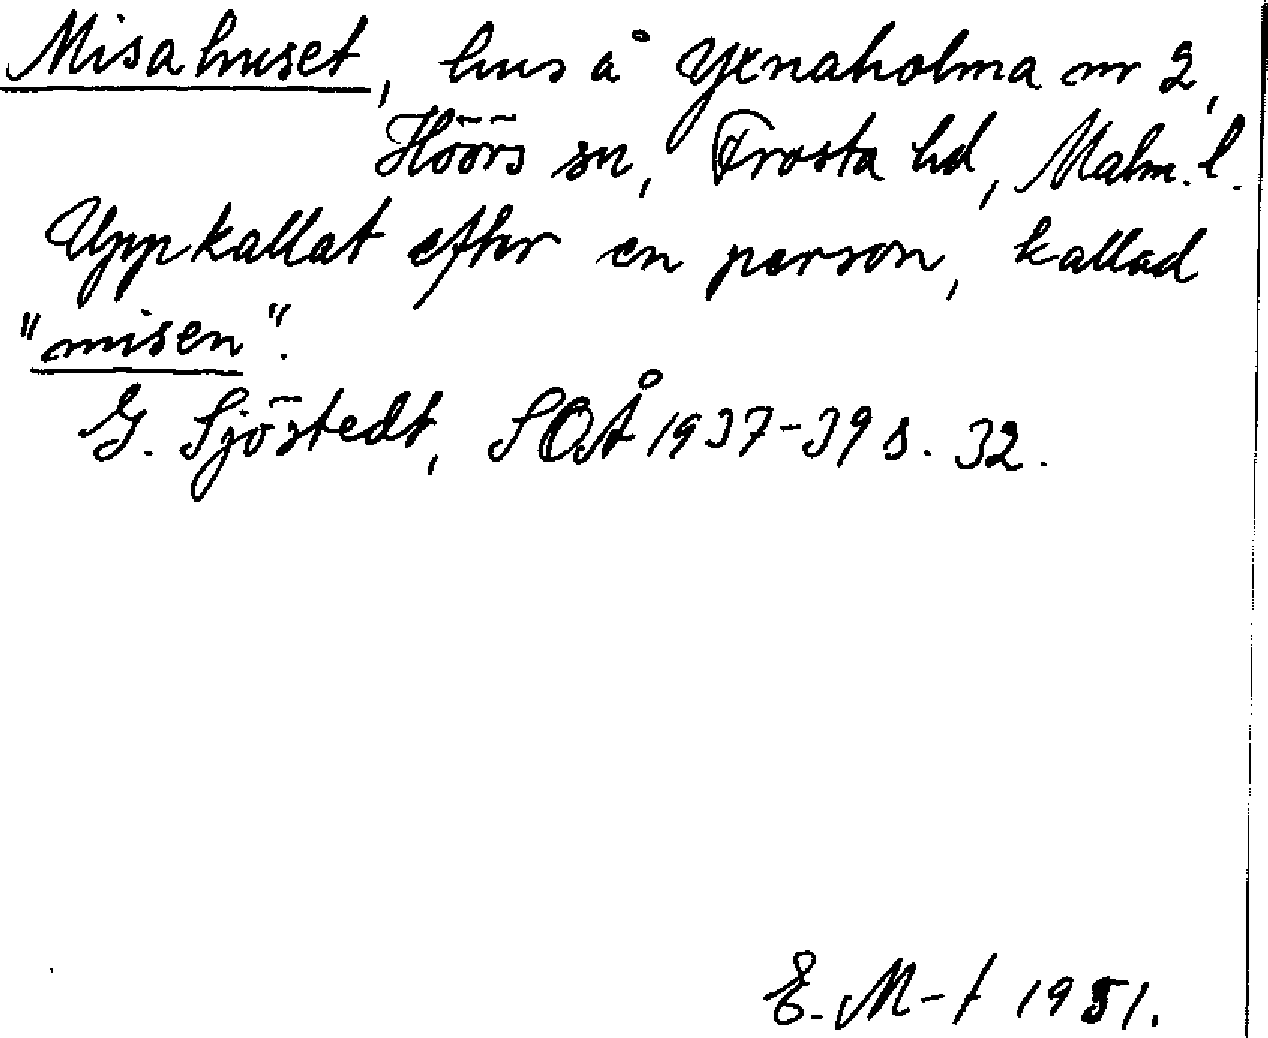 Misahuset, hus å Yxnaholma nr 2,
Höörs sn, Frosta hd, Malm. l.
Uppkallat efter en person, kallad
"misen".
G. Sjöstedt, SOÅ 1937-39 s. 32.
E. M-t 1951.